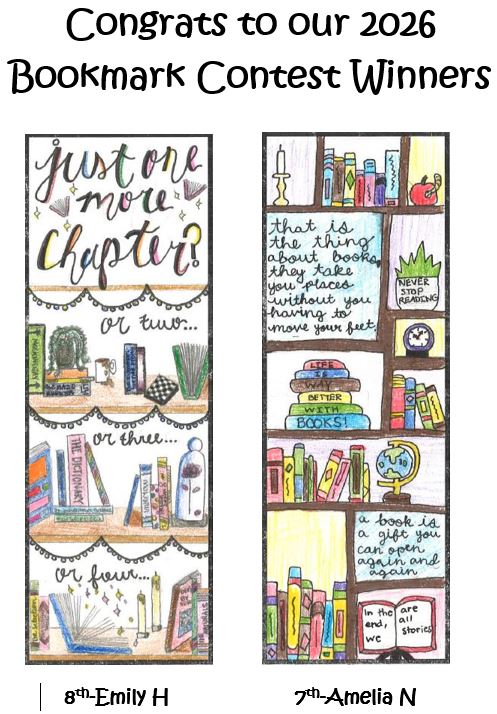 Congrats to our 2026
Bookmark Contest Winners
just one
more
chapter?
or two...
or three...
THE DICTIONARY
or four...
that is
the thing
about books,
they take
you places
without you
having to
move your feet.
NEVER
STOP
READING
LIFE
IS
WAY
BETTER
WITH
BOOKS!
a book is
a gift you
can open
again and
again
in the
end,
we
are
all
stories
8th-Emily H
7th-Amelia N